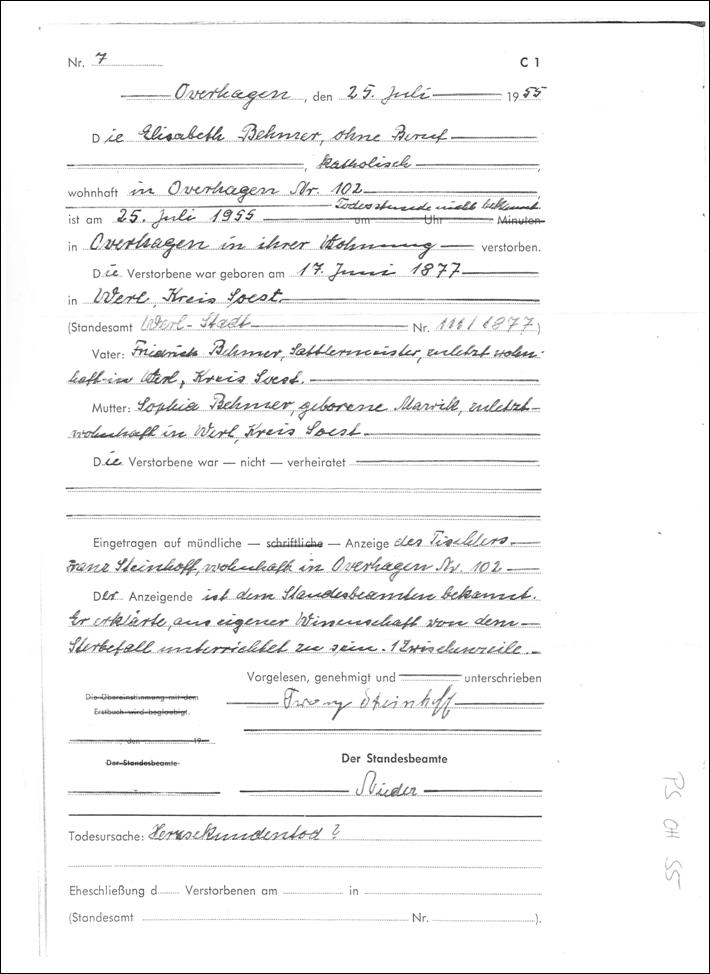 Nr. 7 C 1
Overhagen, den 25. Juli 1955
Die Elisabeth Behmer, ohne Beruf
, katholisch,
wohnhaft in Overhagen Nr. 102,
Todesstunde nicht bekannt
ist am 25. Juli 1955 um Uhr Minuten
in Overhagen in ihrer Wohnung verstorben.
Die Verstorbene war geboren am 17. Juni 1877
in Werl, Kreis Soest.
(Standesamt Werl-Stadt Nr. 111/1877)
Vater: Friedrich Behmer, Sattlermeister, zuletzt wohn-
haft in Werl, Kreis Soest.
Mutter: Sophia Behmer, geborene zuletzt
wohnhaft in Werl, Kreis Soest
Die Verstorbene war — nicht — verheiratet
Eingetragen auf mündliche — schriftliche — Anzeige des Tischlers
Franz Steinhoff, wohnhaft in Overhagen Nr. 102
Der Anzeigende ist dem Standesbeamten bekannt.
Er erklärte, aus eigener Wissenschaft von dem
Sterbefall unterrichtet zu sein. 1 Zwischenzeile.
Vorgelesen, genehmigt und unterschrieben
Die Übereinstimmung mit dem
Erstbuch wird beglaubigt.
Franz Steinhoff
, den 19
Der Standesbeamte
Der Standesbeamte
Nieder
Todesursache: Herzsekundentod ?
Eheschließung d Verstorbenen am in
(Standesamt Nr. ).